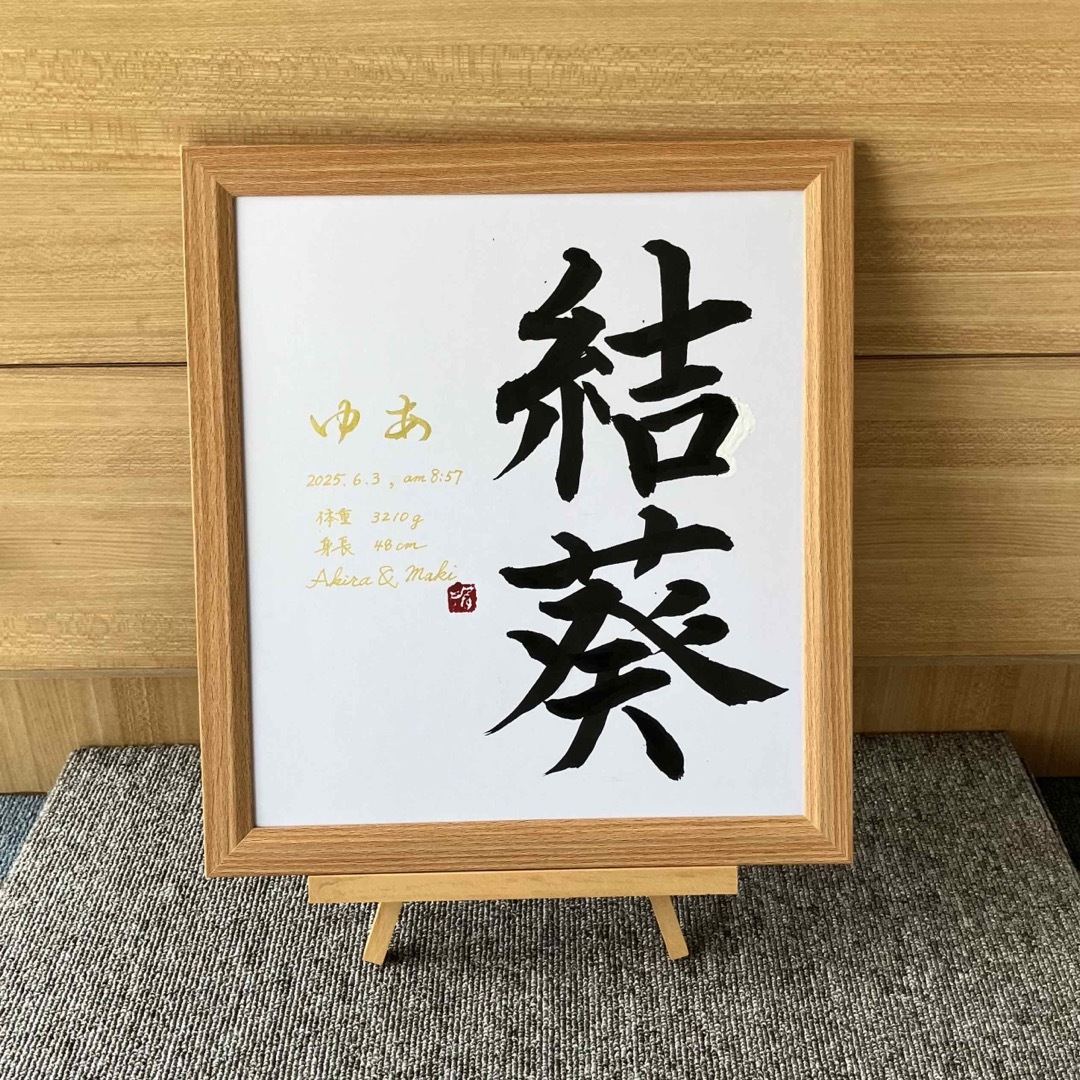 結葵
ゆあ
2025.6.3, am 8:57
体重 3210g
身長 48cm
Akira & Maki